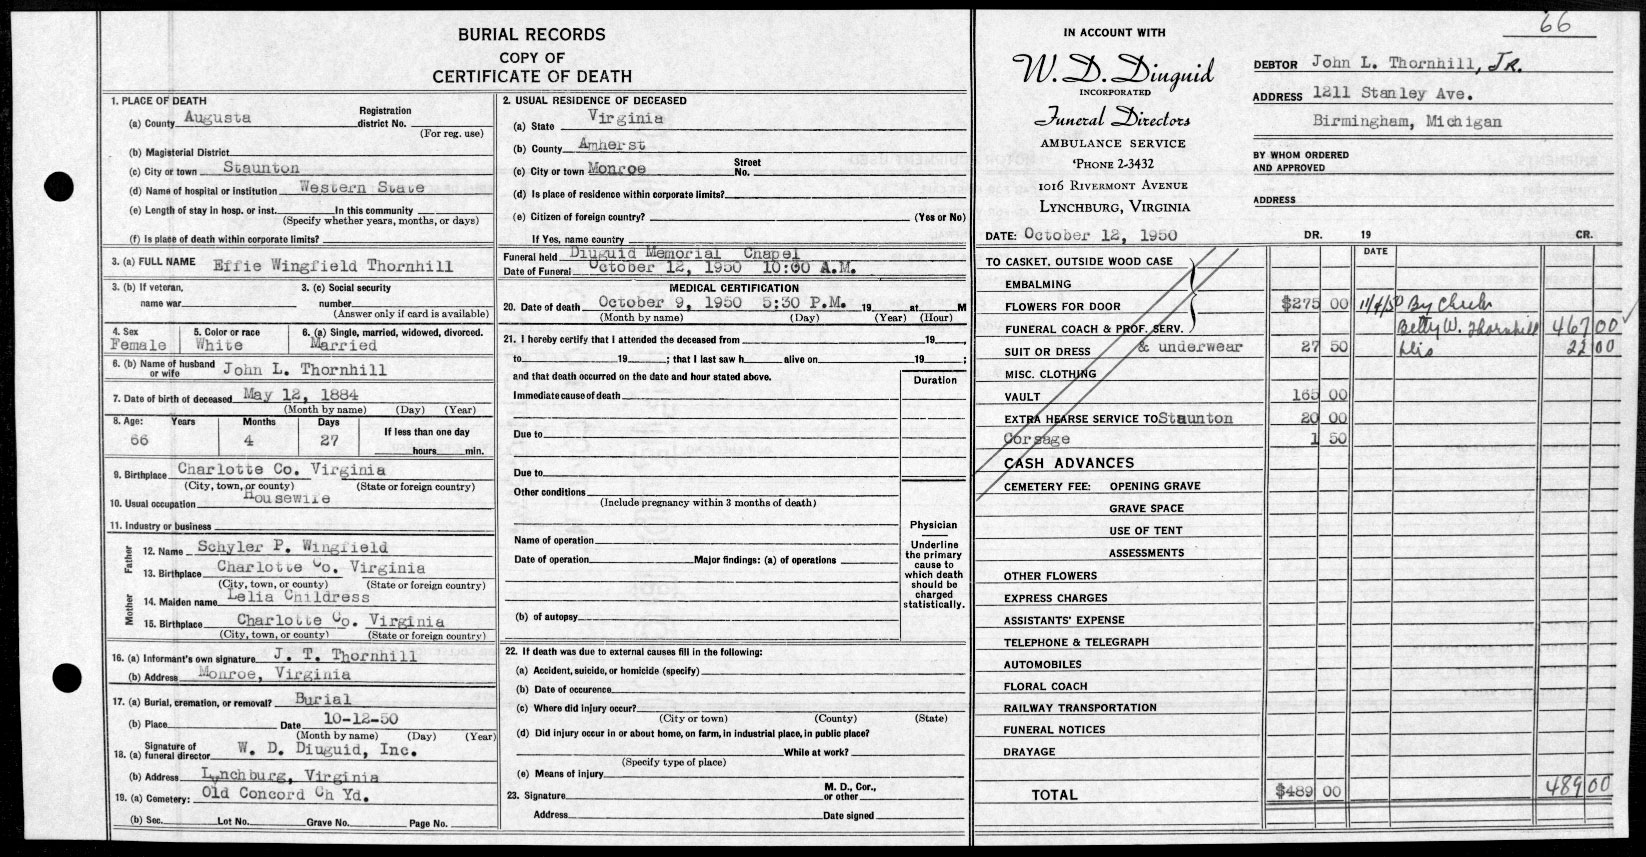 66
BURIAL RECORDS
COPY OF
CERTIFICATE OF DEATH
1. PLACE OF DEATH
(a) County Augusta Registration district No.
(For reg. use)
(b) Magisterial District
(c) City or town Staunton
(d) Name of hospital or institution Western State
(e) Length of stay in hosp. or inst. In this community
(Specify whether years, months, or days)
(f) Is place of death within corporate limits?
3. (a) FULL NAME Effie Wingfield Thornhill
3. (b) If veteran, name war 3. (c) Social security number
(Answer only if card is available)
4. Sex Female 5. Color or race White 6. (a) Single, married, widowed, divorced. Married
6. (b) Name of husband or wife John L. Thornhill
7. Date of birth of deceased May 12, 1884
(Month by name) (Day) (Year)
8. Age: Years Months Days If less than one day
66 4 27 hours min.
9. Birthplace Charlotte Co. Virginia
(City, town, or county) (State or foreign country)
10. Usual occupation Housewife
11. Industry or business
Father
12. Name Schyler P. Wingfield
13. Birthplace Charlotte Co. Virginia
(City, town, or county) (State or foreign country)
Mother
14. Maiden name Lelia Childress
15. Birthplace Charlotte Co. Virginia
(City, town, or county) (State or foreign country)
16. (a) Informant's own signature J. T. Thornhill
(b) Address Monroe, Virginia
17. (a) Burial, cremation, or removal? Burial
(b) Place Date 10-12-50
(Month by name) (Day) (Year)
18. (a) Signature of funeral director W. D. Diuguid, Inc.
(b) Address Lynchburg, Virginia
19. (a) Cemetery: Old Concord Ch Yd.
(b) Sec. Lot No. Grave No. Page No.
2. USUAL RESIDENCE OF DECEASED
(a) State Virginia
(b) County Amherst
(c) City or town Monroe Street No.
(d) Is place of residence within corporate limits?
(e) Citizen of foreign country? (Yes or No)
If Yes, name country
Funeral held Diuguid Memorial Chapel
Date of Funeral October 12, 1950 10:00 A.M.
MEDICAL CERTIFICATION
20. Date of death October 9, 1950 5:30 P.M. 19 at M
(Month by name) (Day) (Year) (Hour)
21. I hereby certify that I attended the deceased from 19 ,
to 19 ; that I last saw h alive on 19 ;
and that death occurred on the date and hour stated above.
Duration
Immediate cause of death
Due to
Due to
Other conditions
(Include pregnancy within 3 months of death)
Name of operation
Date of operation Major findings: (a) of operations
(b) of autopsy
Physician
Underline the primary cause to which death should be charged statistically.
22. If death was due to external causes fill in the following:
(a) Accident, suicide, or homicide (specify)
(b) Date of occurence
(c) Where did injury occur?
(City or town) (County) (State)
(d) Did injury occur in or about home, on farm, in industrial place, in public place?
While at work?
(Specify type of place)
(e) Means of injury
23. Signature M. D., Cor., or other
Address Date signed
IN ACCOUNT WITH
W. D. Diuguid
INCORPORATED
Funeral Directors
AMBULANCE SERVICE
'PHONE 2-3432
1016 RIVERMONT AVENUE
LYNCHBURG, VIRGINIA
DEBTOR John L. Thornhill, JR.
ADDRESS 1211 Stanley Ave.
Birmingham, Michigan
BY WHOM ORDERED AND APPROVED
ADDRESS
DATE: October 12, 1950 DR. 19 CR.
DATE
TO CASKET, OUTSIDE WOOD CASE
EMBALMING
FLOWERS FOR DOOR $275 00 11/4/50 By Check
FUNERAL COACH & PROF. SERV. Betty W. Thornhill 467 00
SUIT OR DRESS & underwear 27 50 Dis 22 00
MISC. CLOTHING
VAULT 165 00
EXTRA HEARSE SERVICE TO Staunton 20 00
Corsage 1 50
CASH ADVANCES
CEMETERY FEE: OPENING GRAVE
GRAVE SPACE
USE OF TENT
ASSESSMENTS
OTHER FLOWERS
EXPRESS CHARGES
ASSISTANTS' EXPENSE
TELEPHONE & TELEGRAPH
AUTOMOBILES
FLORAL COACH
RAILWAY TRANSPORTATION
FUNERAL NOTICES
DRAYAGE
TOTAL $489 00 489 00